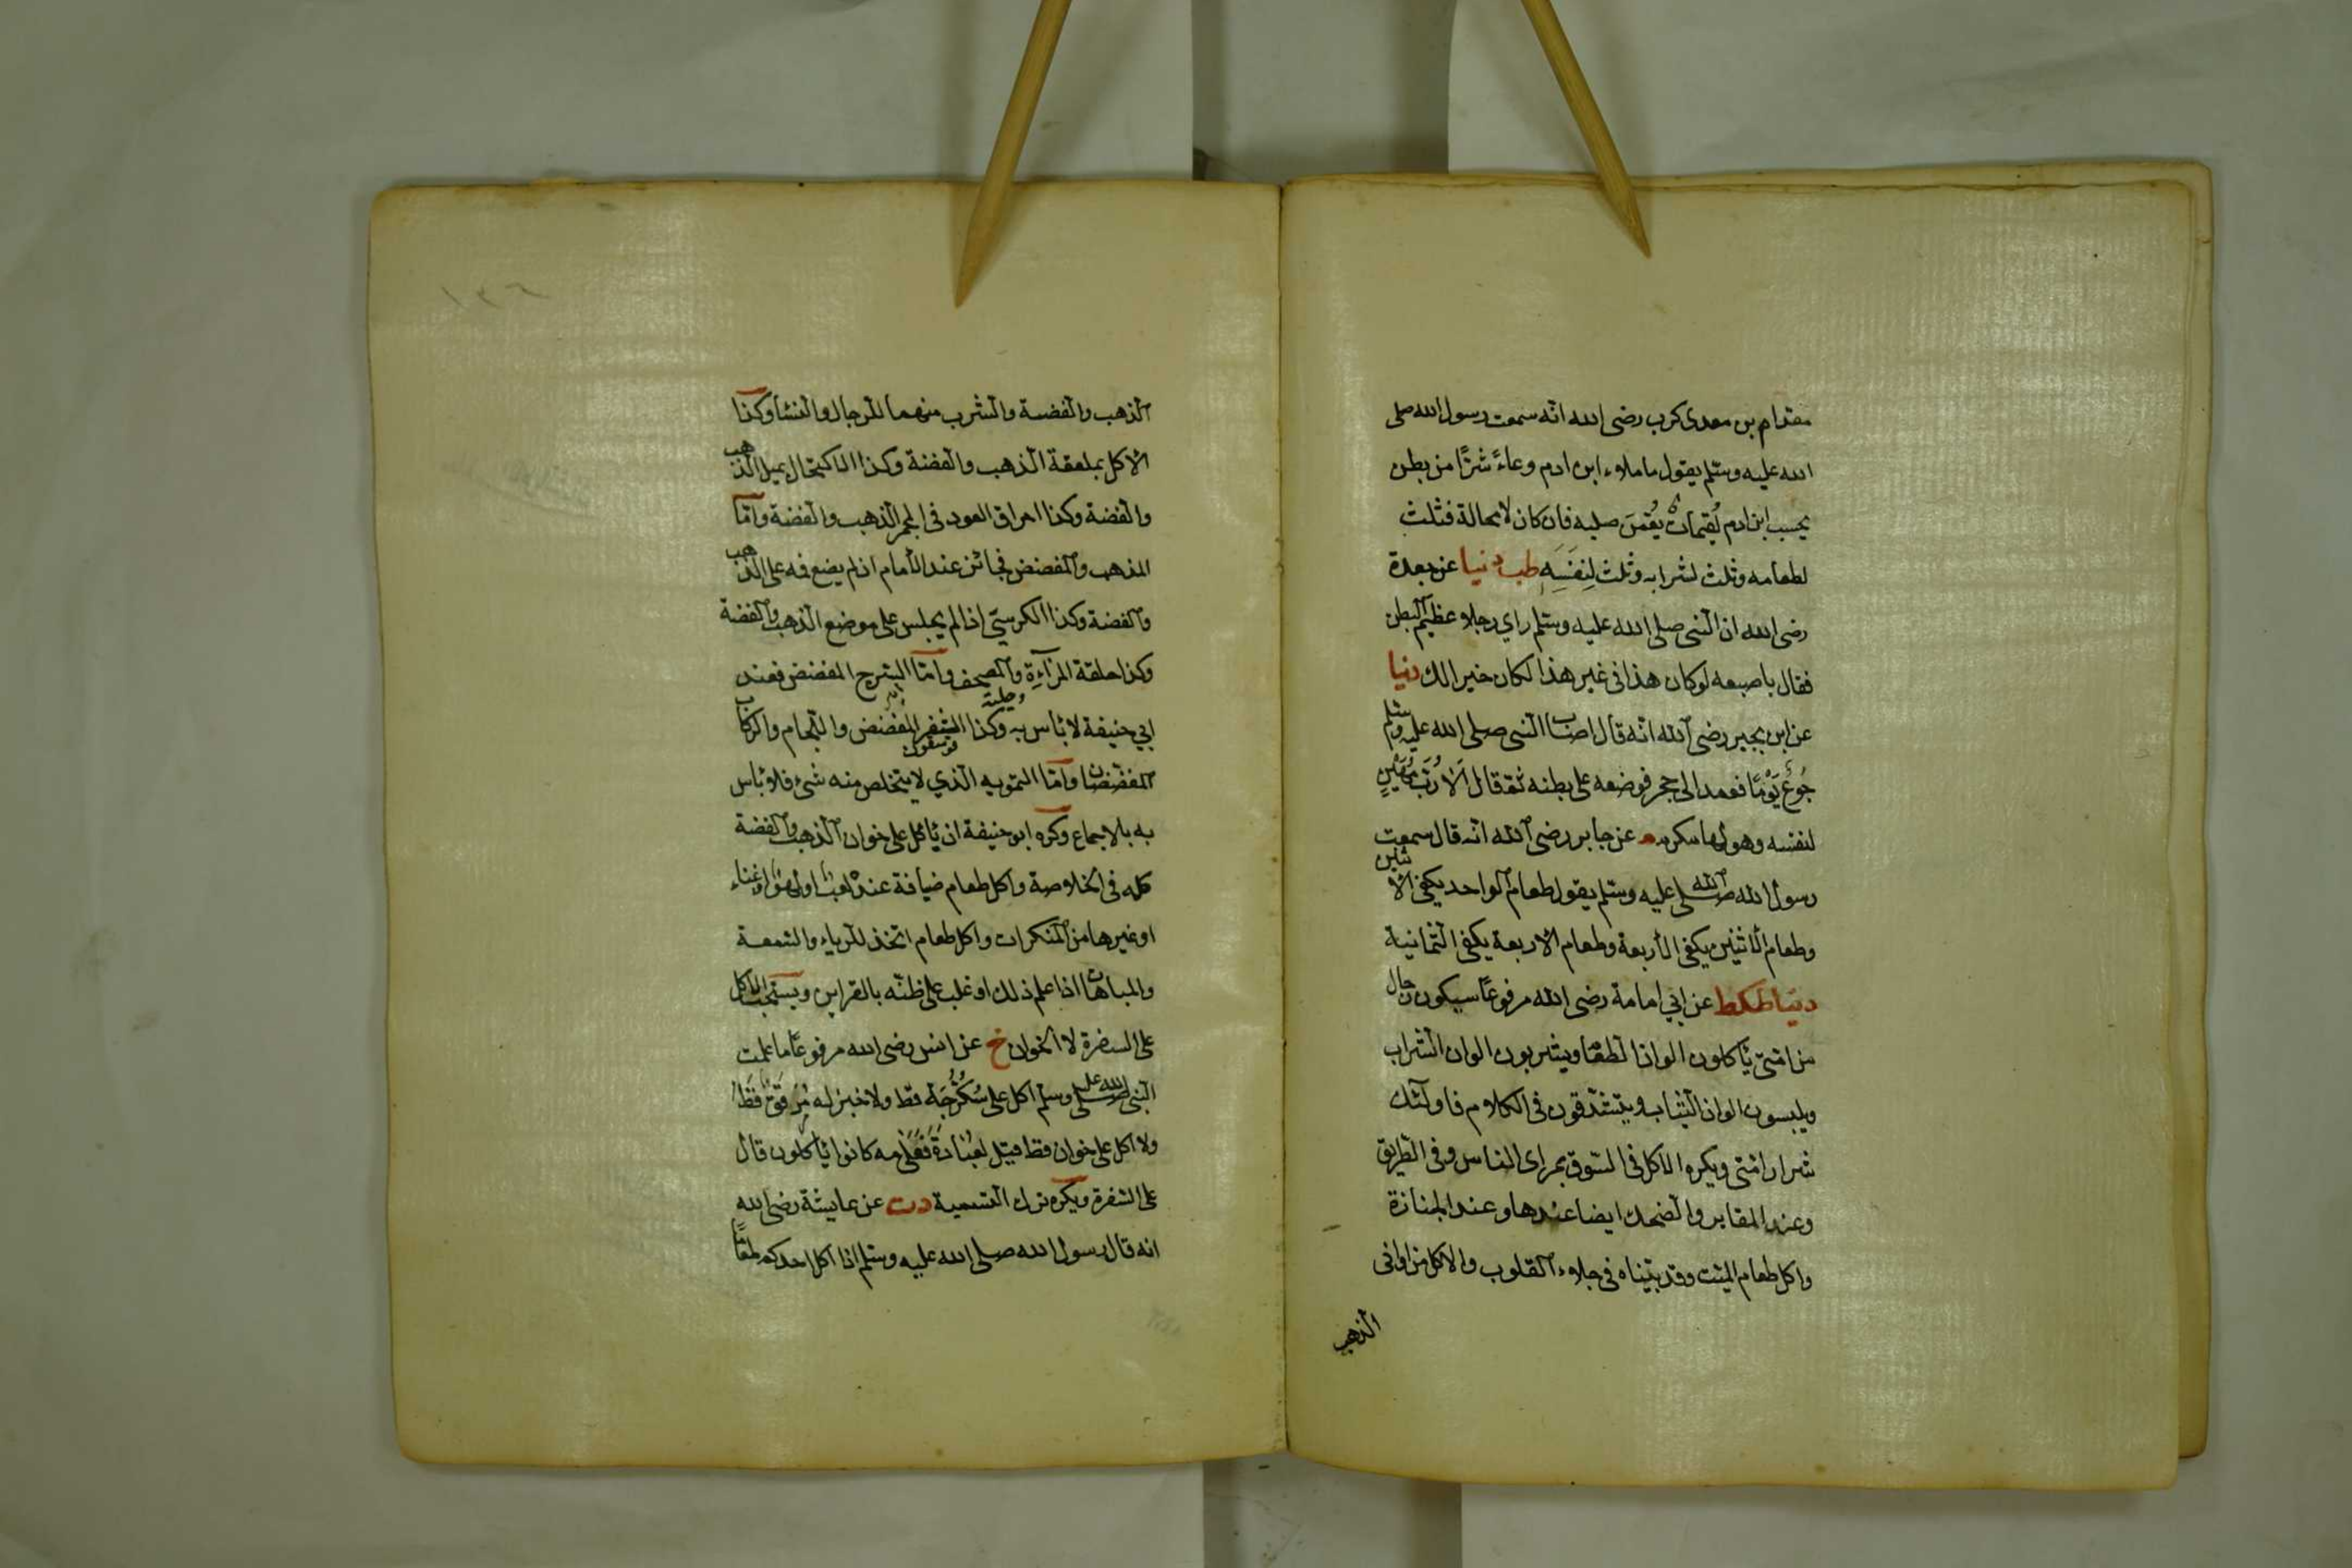 مقدام بن معدى كرب رضى الله انه سمعت رسول الله صلى
الله عليه وسلم يقول ما ملاء ابن ادم وعاءً شرًا من بطن
بحسب ابن ادم لُقيمات يُقمن صلبه فان كان لا محالة فثلث
لطعامه وثلث لشرابه وثلث لِنفَسَهِ طب دنيا عن جعدة
رضى الله ان النبى صلى الله عليه وسلم راي رجلا عظيم البطن
فقال باصبعه لو كان هذا فى غير هذا لكان خيرا لك دنيا
عن ابن بجير رضى الله انه قال اصاب النبى صلى الله عليه وسلم
جُوعٌ يَوْمًا فعمد الى حجر فوضعه على بطنه ثم قال اَلا رُبَّ مُهِينٍ
لنفسه وهو لها مكرم م عن جابر رضى الله انه قال سمعت
رسول الله صلى الله عليه وسلم يقول طعام الواحد يكفى الاثنين
وطعام الاثنين يكفى الاربعة وطعام الاربعة يكفى الثمانية
دنيا طكط عن ابي امامة رضى الله مرفوعًا سيكون رجال
من امتى يأكلون الوان الطعام ويشربون الوان الشراب
ويلبسون الوان الثياب ويتشدقون فى الكلام فاولئك
شرار امتى ويكره الاكل فى السوق بمراى الناس وفى الطريق
وعند المقابر والضحك ايضا عندها وعند الجنازة
واكل طعام الميت وقد بيناه فى جلاء القلوب والاكل من اوانى
الذهب
١٣٦
الذهب والفضة والشرب منهما للرجال والنسا وكذا
الاكل بملعقة الذهب والفضة وكذا الاكتحال بميل الذهب
والفضة وكذا احراق العود فى المجمر الذهب والفضة واما
المذهب والمفضض فجائز عند الامام ان لم يضع فمه على الذهب
والفضة وكذا الكرسى اذا لم يجلس على موضع الذهب والفضة
وكذا حلقة المرآءة والمصحف واما السرج المفضض فعند
ابي حنيفة لا بأس به وكذا الثفر المفضض واللجام والركاب
المفضضان واما التمويه الذي لا يتخلص منه شىء فلا بأس
به بالاجماع وكره ابو حنيفة ان يأكل على خوان الذهب والفضة
كله فى الخلاصة واكل طعام ضيافة عنده لعب او لهو او غناء
او غيرها من المنكرات واكل طعام اتخذ للرياء والسمعة
والمباهات اذا علم ذلك او غلب على ظنه بالقراين ويستحب الاكل
على السفرة لا الخوان خ عن انس رضى الله مرفوعًا ما علمت
النبى صلى الله عليه وسلم اكل على سُكُرُّجَة قط ولا خبز له مُرَقَّقٌ قَطُّ
ولا اكل على خوان قط قيل لقتادة فَعَلَى مه كانوا يأكلون قال
على السفرة ويكره ترك التسمية دت عن عايشة رضى الله
انه قال رسول الله صلى الله عليه وسلم اذا اكل احدكم طعامًا